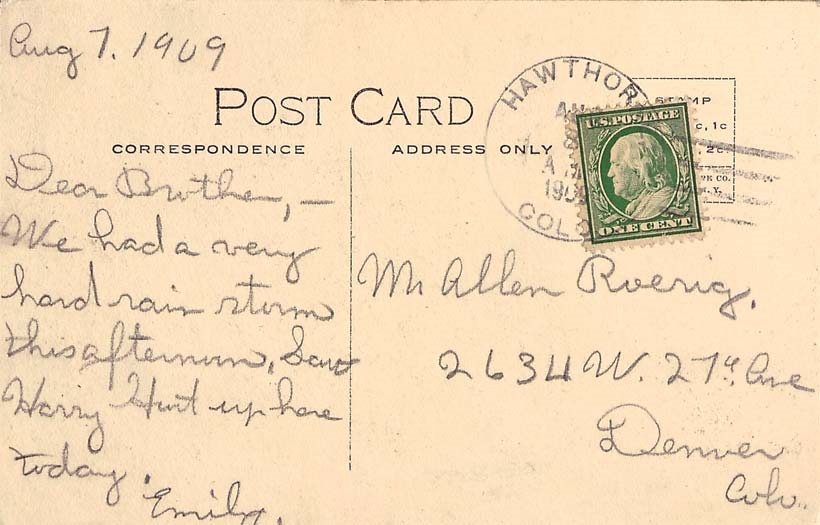 Aug 7. 1909
POST CARD
CORRESPONDENCE
ADDRESS ONLY
HAWTHOR
AU
8
A M
190
COLO
STAMP
c, 1c
, 2c
CO.
Y.
U.S. POSTAGE
ONE CENT
Dear Brother, —
We had a very
hard rain storm
this afternoon. Saw
Harry Hurt up here
today.
Emily.
Mr Allen Roerig.
2634 W. 27th Ave
Denver
Colo.